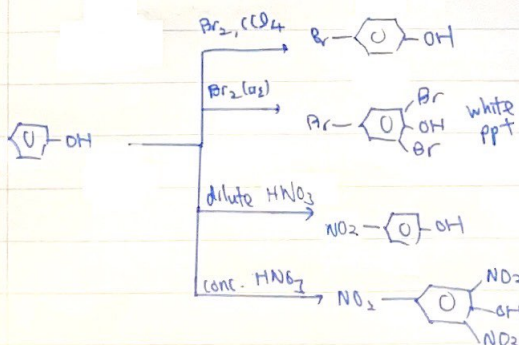 Br2, CCl4
Br OH
Br2(aq)
Br
Br OH white
Br ppt
OH
dilute HNO3
NO2 OH
conc. HNO3
NO2
NO2 OH
NO2